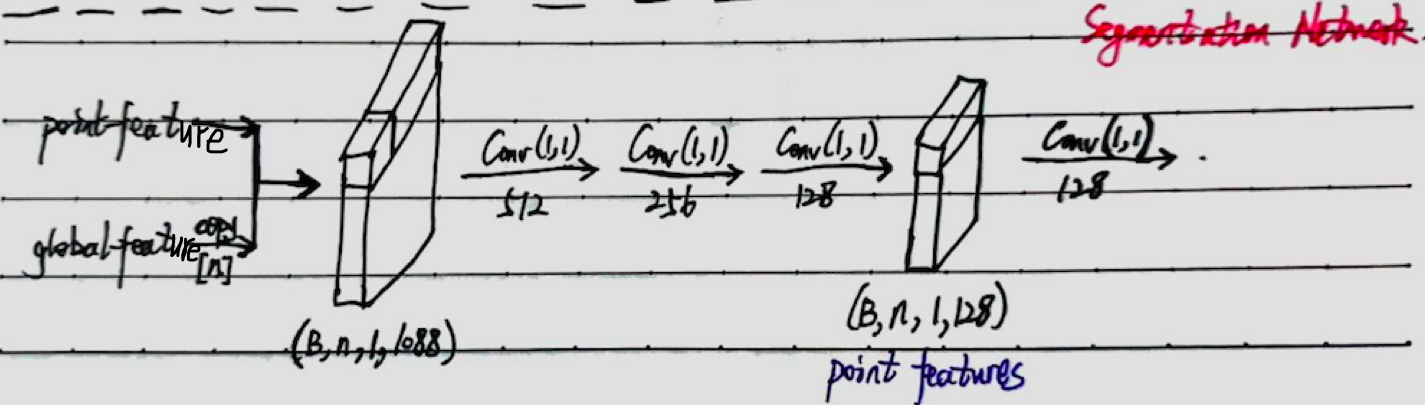 Segmentation Network
point-feature
global-feature
copy
[n]
(B, n, 1, 1088)
Conv(1,1)
512
Conv(1,1)
256
Conv(1,1)
128
(B, n, 1, 128)
point features
Conv(1,1)
128